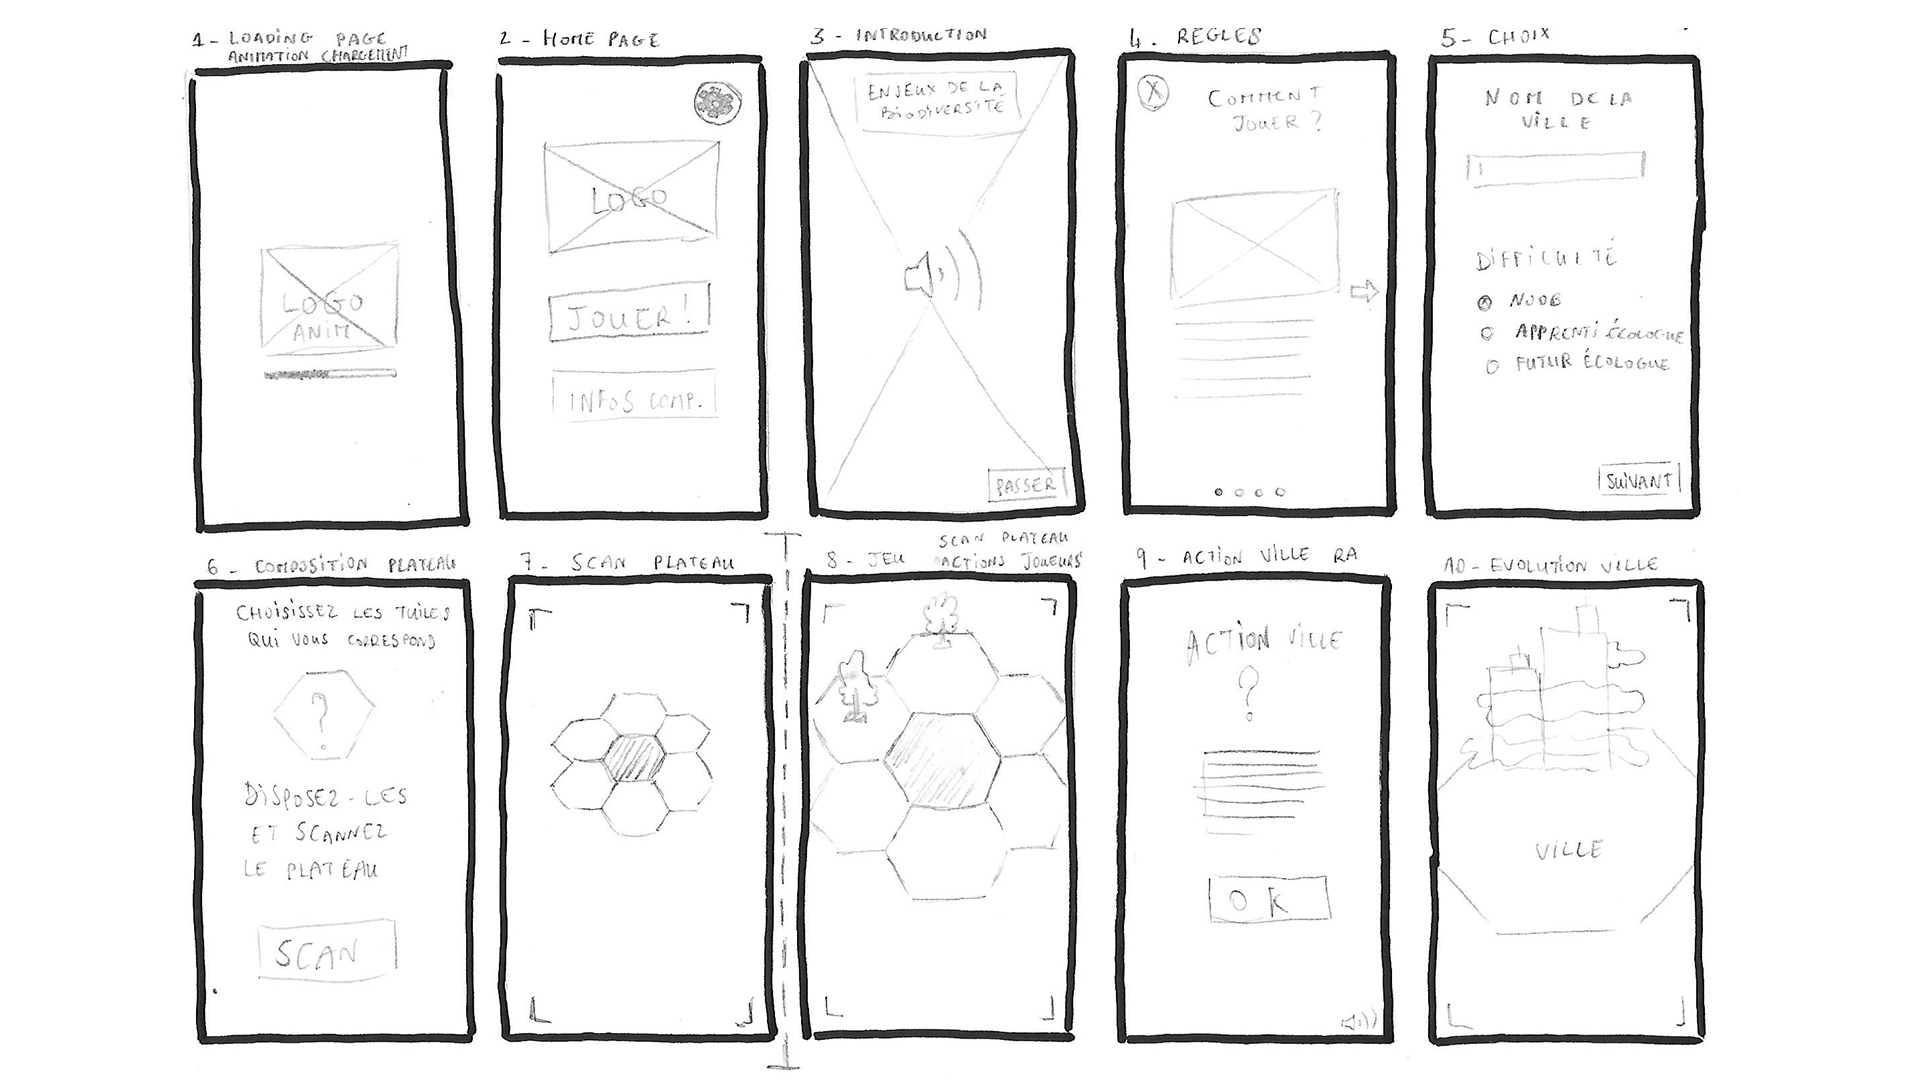 1 - LOADING PAGE
ANIMATION CHARGEMENT
LOGO
ANIM
2 - HOME PAGE
LOGO
JOUER !
INFOS COMP.
3 - INTRODUCTION
ENJEUX DE LA
BIODIVERSITÉ
PASSER
4. REGLES
X
COMMENT
JOUER ?
5 - CHOIX
NOM DE LA
VILLE
DIFFICULTÉ
NOOB
APPRENTI ÉCOLOGUE
FUTUR ÉCOLOGUE
SUIVANT
6 - COMPOSITION PLATEAU
CHOISISSEZ LES TUILES
QUI VOUS CORRESPOND
?
DISPOSEZ-LES
ET SCANNEZ
LE PLATEAU
SCAN
7 - SCAN PLATEAU
8 - JEU
SCAN PLATEAU
ACTIONS JOUEURS
9 - ACTION VILLE RA
ACTION VILLE
?
OK
10 - EVOLUTION VILLE
VILLE